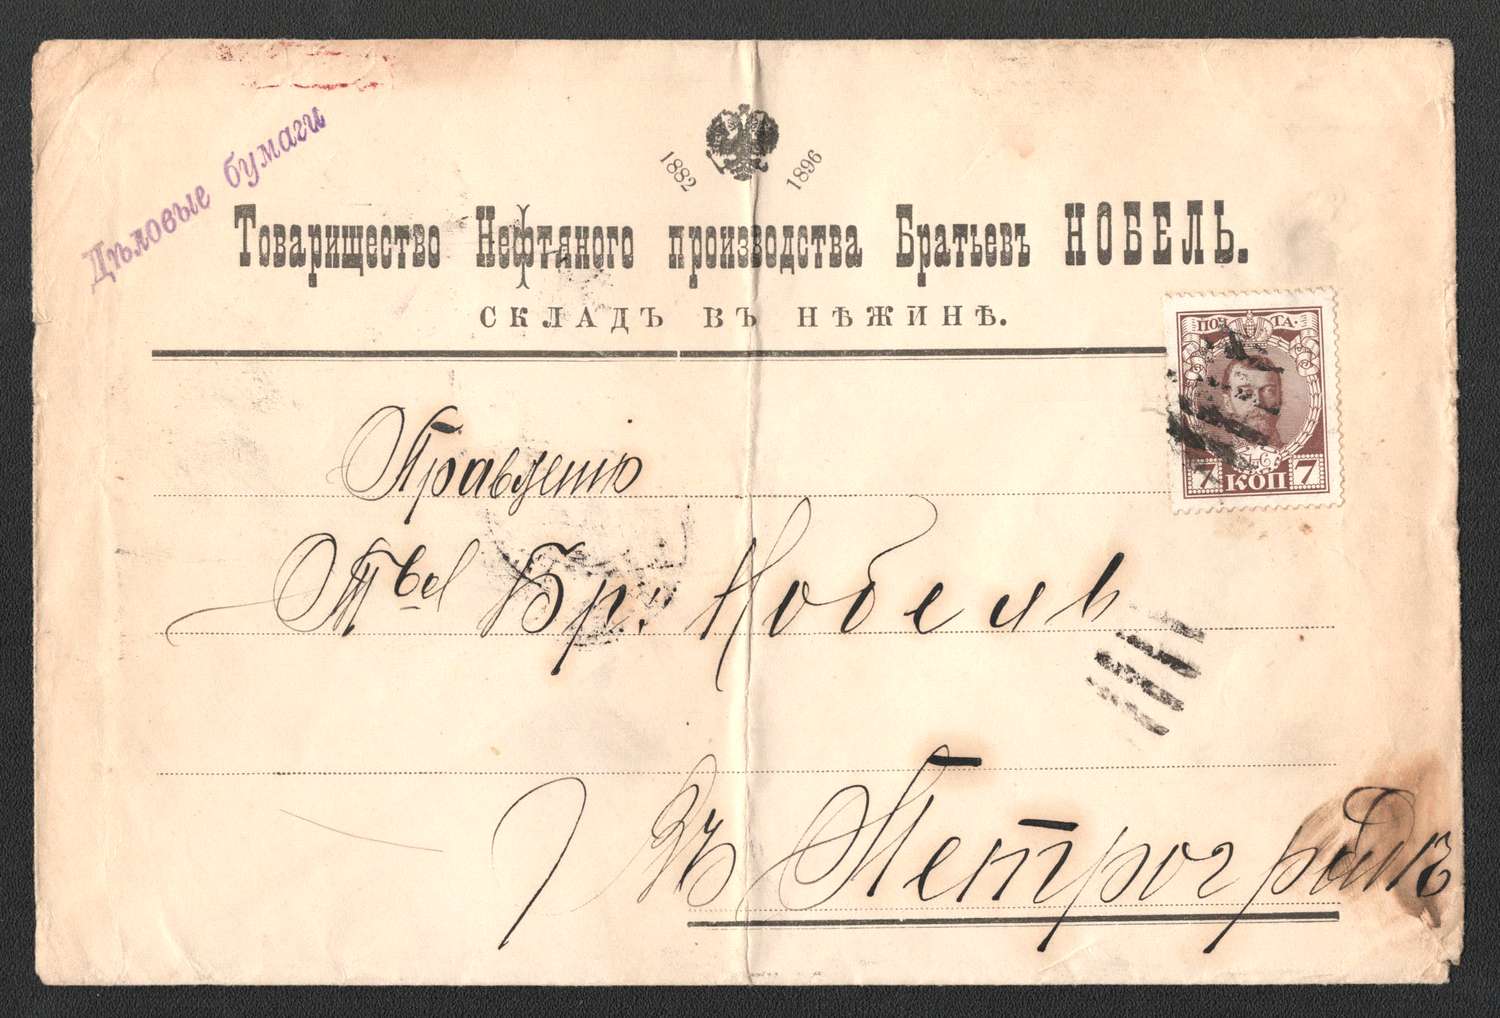 Дѣловые бумаги
1882 1896
Товарищество Нефтяного производства Братьевъ НОБЕЛЬ.
СКЛАДЪ ВЪ НѢЖИНѢ.
ПОЧТА.
7 КОП 7
Правленію
Т-ва Бр: Нобель
Въ Петроградѣ